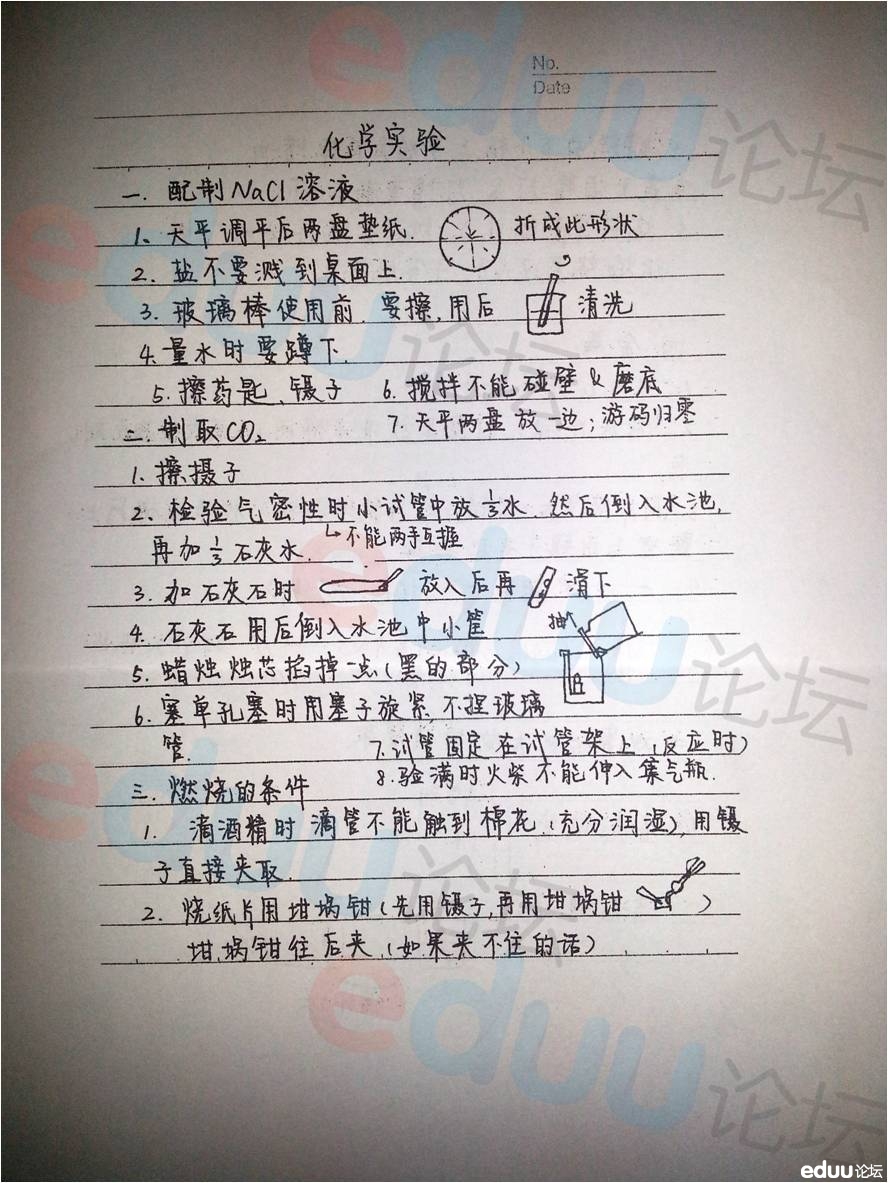 No.
Date
化学实验
一. 配制NaCl溶液
1、天平调平后两盘垫纸. 折成此形状
2、盐不要溅到桌面上.
3. 玻璃棒使用前要擦,用后 清洗
4.量水时要蹲下.
5.擦药匙、镊子 6.搅拌不能碰壁&磨底
7.天平两盘放一边;游码归零
二.制取CO₂
1.擦摄子
2、检验气密性时小试管中放⅓水.然后倒入水池,
↳不能两手互握
再加⅓石灰水.
3.加石灰石时 放入后再 滑下
4.石灰石用后倒入水池中小筐 抽
5.蜡烛烛芯掐掉一点(黑的部分)
6.塞单孔塞时用塞子旋紧,不捏玻璃
管. 7.试管固定在试管架上(反应时)
8.验满时火柴不能伸入集气瓶.
三.燃烧的条件
1. 滴酒精时滴管不能触到棉花(充分润湿),用镊
子直接夹取.
2. 烧纸片用坩埚钳(先用镊子,再用坩埚钳 )
坩埚钳往后夹(如果夹不住的话)
eduu论坛
eduu论坛
eduu论坛
eduu论坛
eduu论坛